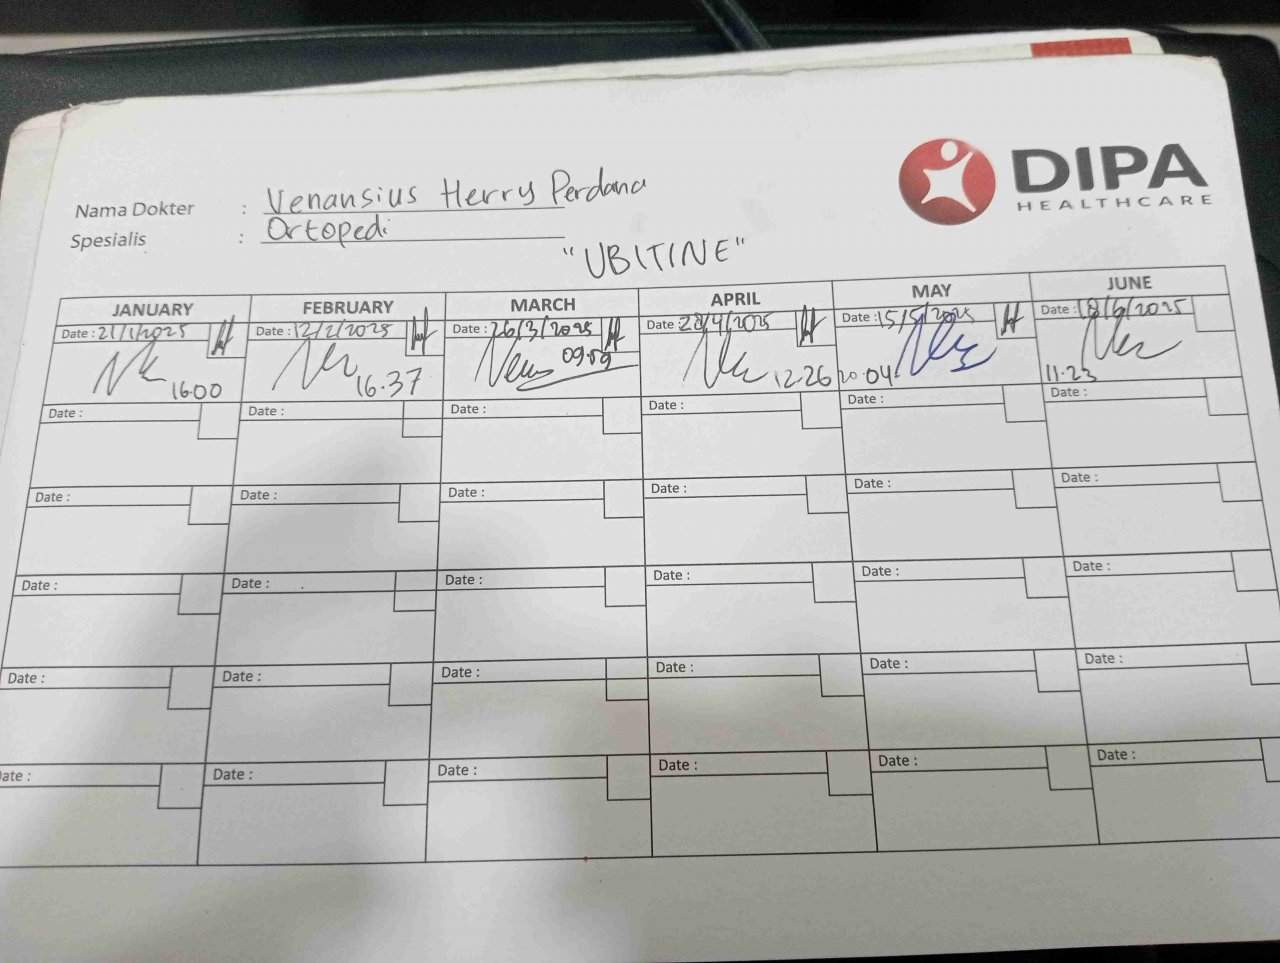 DIPA
HEALTHCARE
Nama Dokter : Venansius Herry Perdana
Spesialis : Ortopedi
"UBITINE"
JANUARY FEBRUARY MARCH APRIL MAY JUNE
Date : 21/1/2025 Date : 12/2/2025 Date : 26/3/2025 Date : 28/4/2025 Date : 15/5/2025 Date : 18/6/2025
16.00 16.37 09.59 12.26 20.04 11.23
Date : Date : Date : Date : Date : Date :
Date : Date : Date : Date : Date : Date :
Date : Date : Date : Date : Date : Date :
Date : Date : Date : Date : Date : Date :
ate : Date : Date : Date : Date : Date :